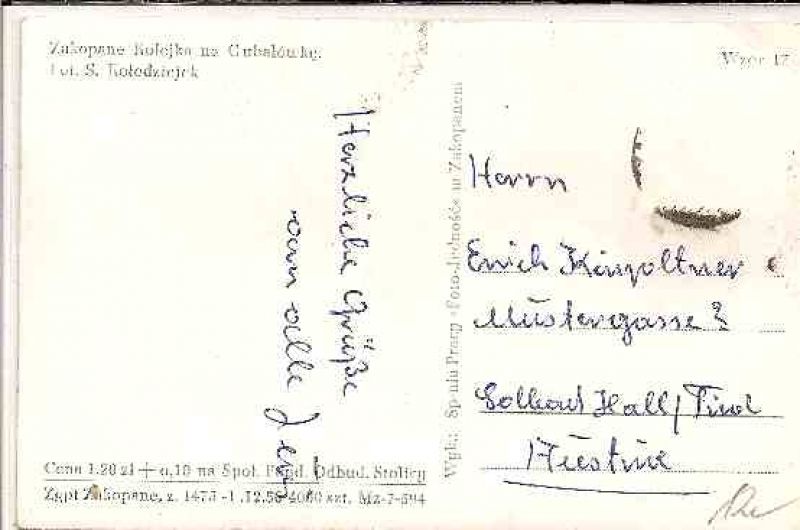 Zakopane Kolejka na Gubałówkę.
Fot. S. Kołodziejek
Wzór 17
Herzliche Grüße
von alle
Wyk.: Sp-nia Pracy «Foto-Jedność» w Zakopanem
Herrn
Erich
Mustergasse 2
Solbad Hall / Tirol
Austria
Cena 1.20 zł + 0,10 na Społ. Fund. Odbud. Stolicy
Zgpt Zakopane, z. 1473 -